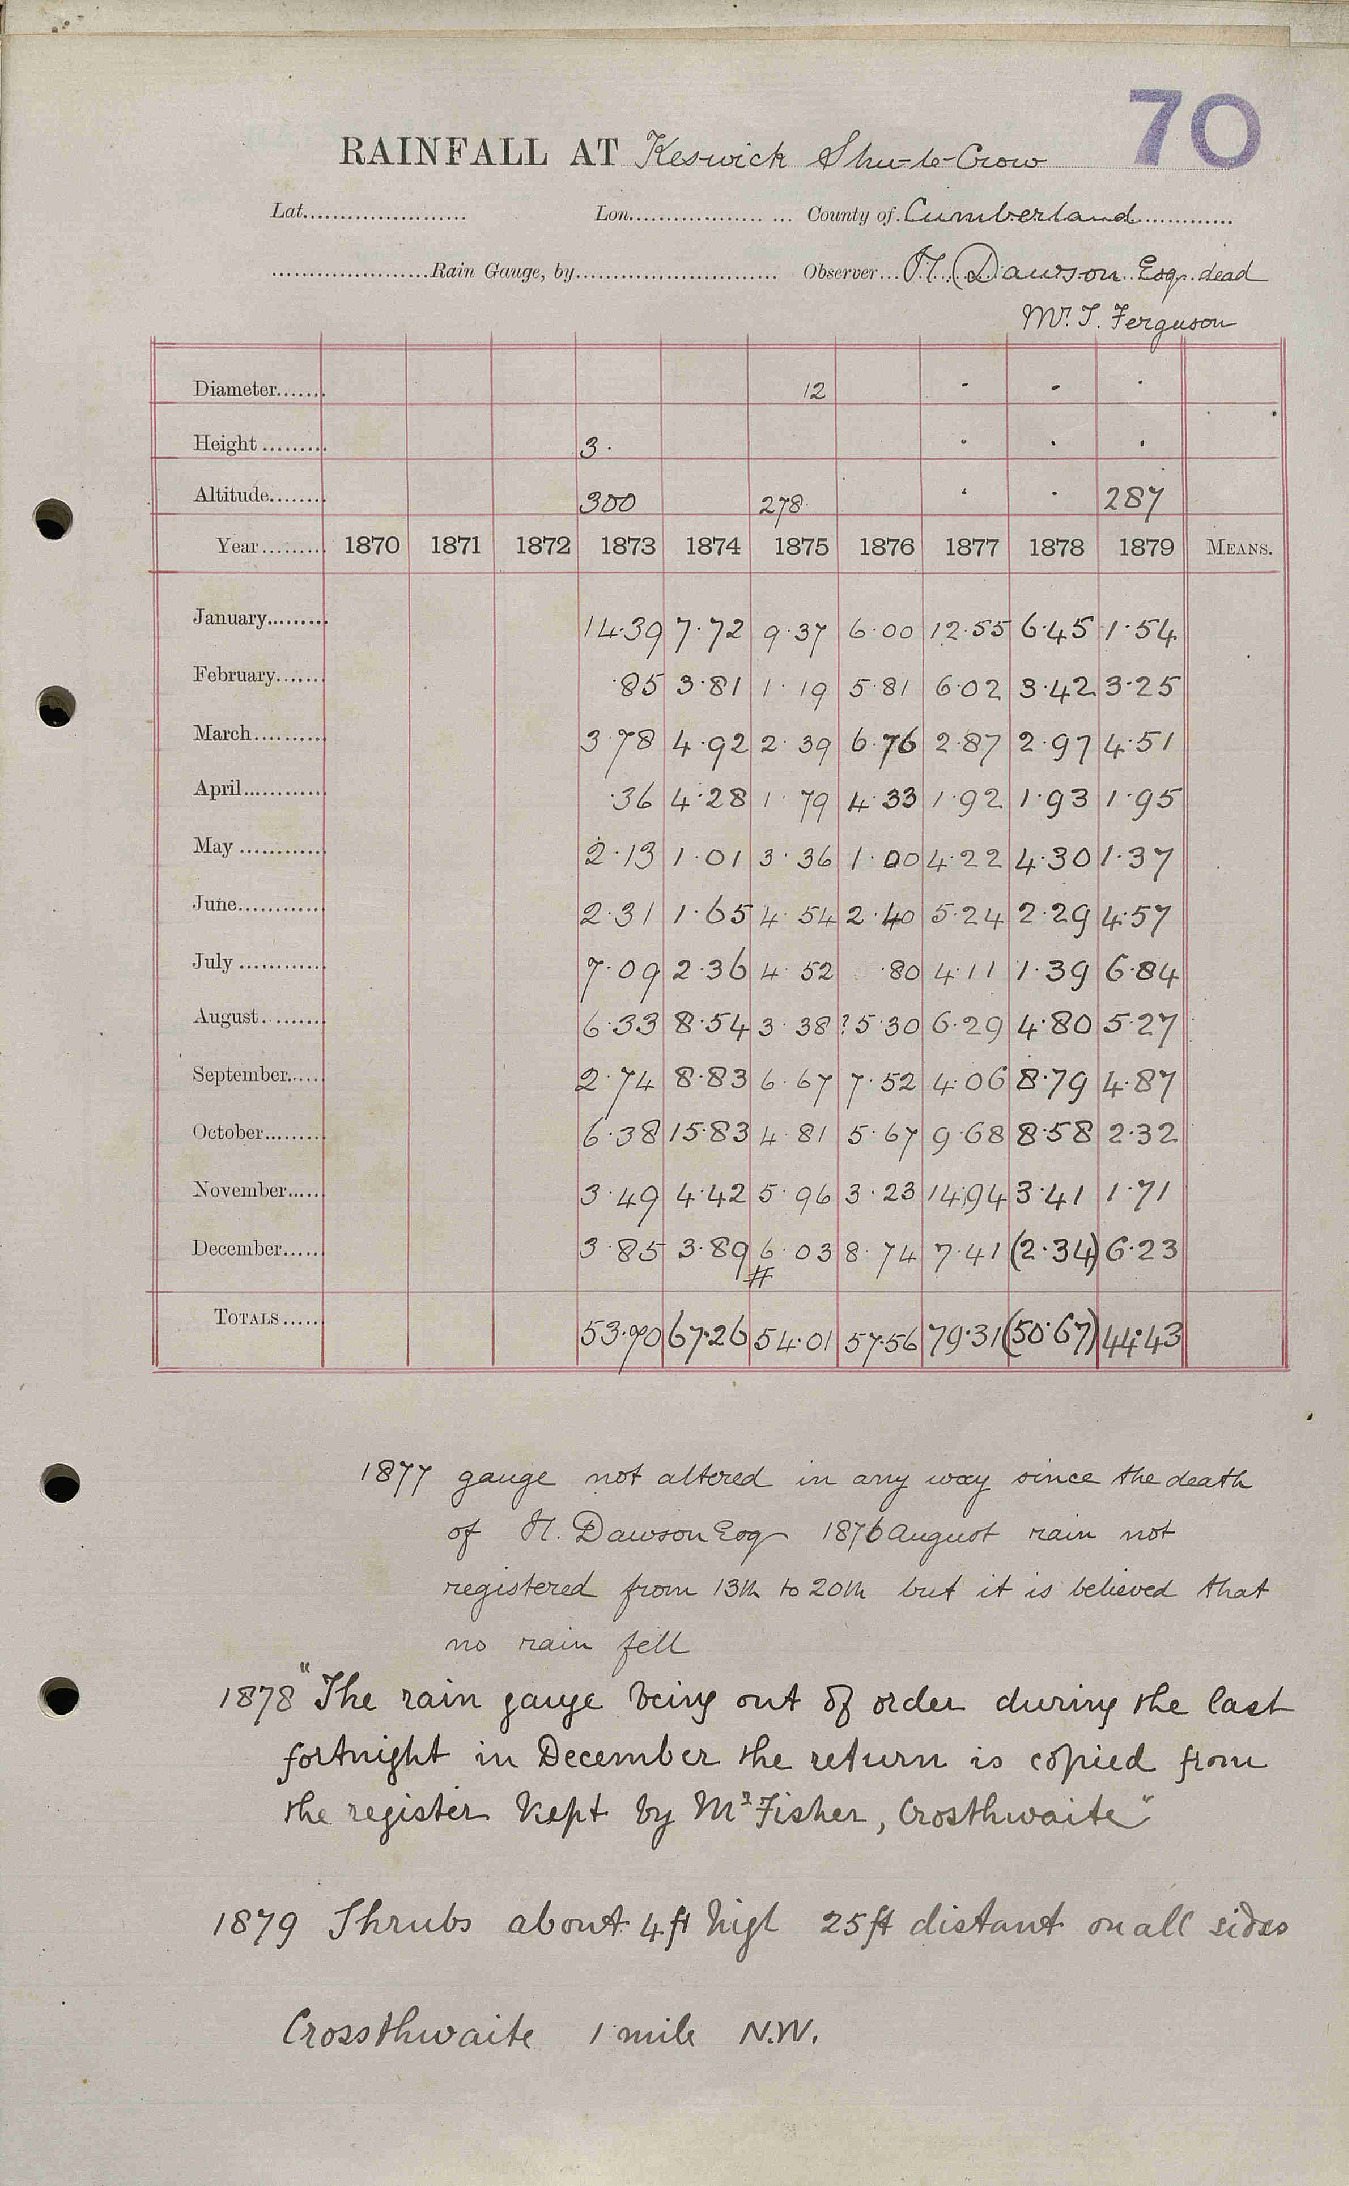 70
RAINFALL AT Keswick Shu-le-Crow
Lat. Lon. County of Cumberland
Rain Gauge, by Observer H. Dawson Esq. dead
Mr. T. Ferguson
Diameter 12 " " "
Height 3. " " "
Altitude 300 278 " " 287
Year 1870 1871 1872 1873 1874 1875 1876 1877 1878 1879 MEANS.
January 14.39 7.72 9.37 6.00 12.55 6.45 1.54
February .85 3.81 1.19 5.81 6.02 3.42 3.25
March 3.78 4.92 2.39 6.76 2.87 2.97 4.51
April .36 4.28 1.79 4.33 1.92 1.93 1.95
May 2.13 1.01 3.36 1.00 4.22 4.30 1.37
June 2.31 1.65 4.54 2.40 5.24 2.29 4.57
July 7.09 2.36 4.52 .80 4.11 1.39 6.84
August 6.33 8.54 3.38 ?5.30 6.29 4.80 5.27
September 2.74 8.83 6.67 7.52 4.06 8.79 4.87
October 6.38 15.83 4.81 5.67 9.68 8.58 2.32
November 3.49 4.42 5.96 3.23 14.94 3.41 1.71
December 3.85 3.89 6.03 8.74 7.41 (2.34) 6.23
#
TOTALS 53.70 67.26 54.01 57.56 79.31 (50.67) 44.43
1877 gauge not altered in any way since the death
of H. Dawson Esq 1876 August rain not
registered from 13th to 20th but it is believed that
no rain fell
1878 "The rain gauge being out of order during the last
fortnight in December the return is copied from
the register kept by Mr Fisher, Crosthwaite"
1879 Shrubs about 4 ft high 25 ft distant on all sides
Crossthwaite 1 mile N.W.